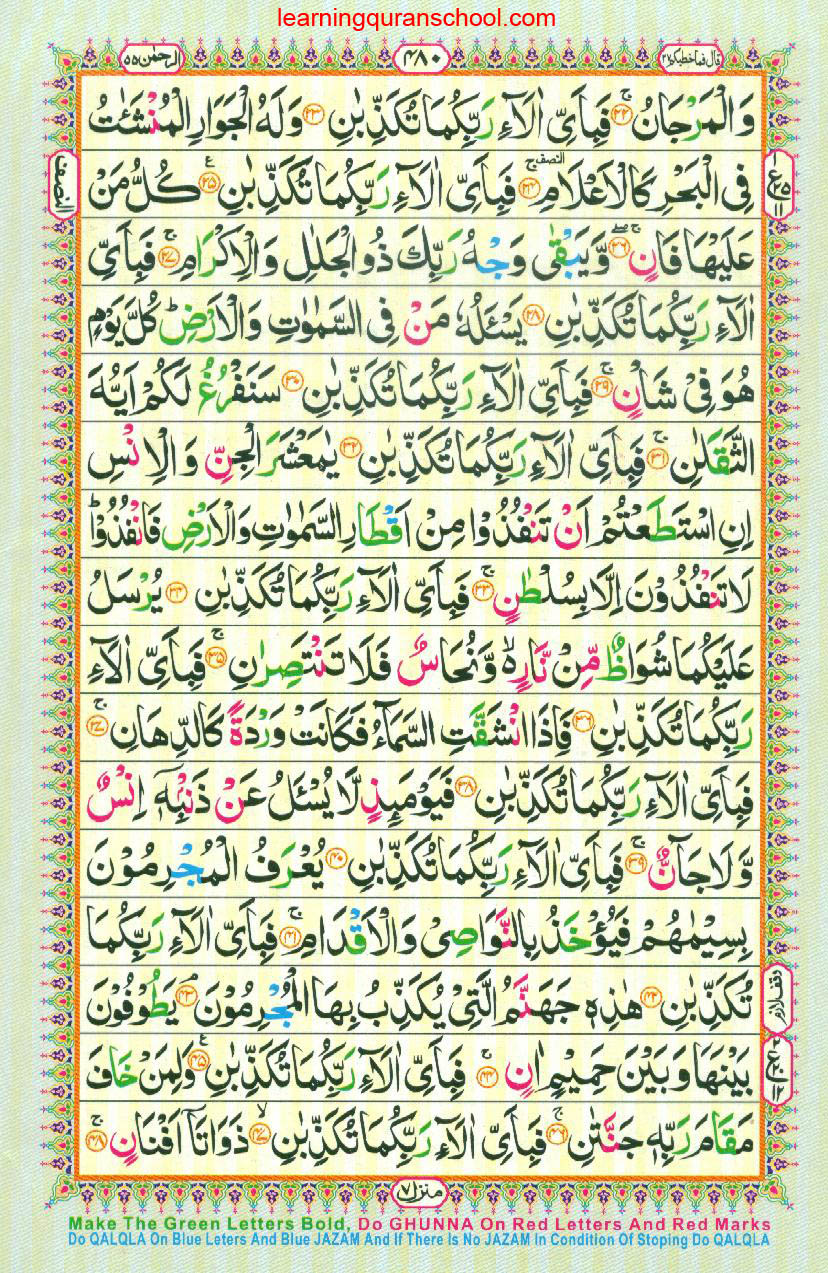 learningquranschool.com
قال فما خطبکم ۲۷
۴۸۰
الرحمٰن ۵۵
وَالْمَرْجَانُ ۚ﴿۲۲﴾ فَبِاَیِّ اٰلَآءِ رَبِّكُمَا تُكَذِّبٰنِ ﴿۲۳﴾ وَلَهُ الْجَوَارِ الْمُنْشَئٰتُ
فِی الْبَحْرِ كَالْاَعْلَامِ ۚ﴿۲۴﴾ فَبِاَیِّ اٰلَآءِ رَبِّكُمَا تُكَذِّبٰنِ ﴿۲۵﴾ كُلُّ مَنْ
النصف
عَلَیْهَا فَانٍ ﴿۲۶﴾ وَّیَبْقٰی وَجْهُ رَبِّكَ ذُو الْجَلٰلِ وَالْاِكْرَامِ ۚ﴿۲۷﴾ فَبِاَیِّ
اٰلَآءِ رَبِّكُمَا تُكَذِّبٰنِ ﴿۲۸﴾ یَسْـَٔلُهٗ مَنْ فِی السَّمٰوٰتِ وَالْاَرْضِ ؕ كُلَّ یَوْمٍ
هُوَ فِیْ شَاْنٍ ۚ﴿۲۹﴾ فَبِاَیِّ اٰلَآءِ رَبِّكُمَا تُكَذِّبٰنِ ﴿۳۰﴾ سَنَفْرُغُ لَكُمْ اَیُّهَ
الثَّقَلٰنِ ۚ﴿۳۱﴾ فَبِاَیِّ اٰلَآءِ رَبِّكُمَا تُكَذِّبٰنِ ﴿۳۲﴾ یٰمَعْشَرَ الْجِنِّ وَالْاِنْسِ
اِنِ اسْتَطَعْتُمْ اَنْ تَنْفُذُوْا مِنْ اَقْطَارِ السَّمٰوٰتِ وَالْاَرْضِ فَانْفُذُوْا ؕ
لَا تَنْفُذُوْنَ اِلَّا بِسُلْطٰنٍ ۚ﴿۳۳﴾ فَبِاَیِّ اٰلَآءِ رَبِّكُمَا تُكَذِّبٰنِ ﴿۳۴﴾ یُرْسَلُ
عَلَیْكُمَا شُوَاظٌ مِّنْ نَّارٍ ۙ۬ وَّنُحَاسٌ فَلَا تَنْتَصِرٰنِ ۚ﴿۳۵﴾ فَبِاَیِّ اٰلَآءِ
رَبِّكُمَا تُكَذِّبٰنِ ﴿۳۶﴾ فَاِذَا انْشَقَّتِ السَّمَآءُ فَكَانَتْ وَرْدَةً كَالدِّهَانِ ۚ﴿۳۷﴾
فَبِاَیِّ اٰلَآءِ رَبِّكُمَا تُكَذِّبٰنِ ﴿۳۸﴾ فَیَوْمَىِٕذٍ لَّا یُسْـَٔلُ عَنْ ذَنْۢبِهٖۤ اِنْسٌ
وَّلَا جَآنٌّ ۚ﴿۳۹﴾ فَبِاَیِّ اٰلَآءِ رَبِّكُمَا تُكَذِّبٰنِ ﴿۴۰﴾ یُعْرَفُ الْمُجْرِمُوْنَ
بِسِیْمٰهُمْ فَیُؤْخَذُ بِالنَّوَاصِیْ وَالْاَقْدَامِ ۚ﴿۴۱﴾ فَبِاَیِّ اٰلَآءِ رَبِّكُمَا
تُكَذِّبٰنِ ﴿۴۲﴾ هٰذِهٖ جَهَنَّمُ الَّتِیْ یُكَذِّبُ بِهَا الْمُجْرِمُوْنَ ۘ﴿۴۳﴾ یَطُوْفُوْنَ
بَیْنَهَا وَبَیْنَ حَمِیْمٍ اٰنٍ ۚ﴿۴۴﴾ فَبِاَیِّ اٰلَآءِ رَبِّكُمَا تُكَذِّبٰنِ ﴿۴۵﴾ وَلِمَنْ خَافَ
مَقَامَ رَبِّهٖ جَنَّتٰنِ ۚ﴿۴۶﴾ فَبِاَیِّ اٰلَآءِ رَبِّكُمَا تُكَذِّبٰنِ ۙ﴿۴۷﴾ ذَوَاتَاۤ اَفْنَانٍ ۚ﴿۴۸﴾
منزل ۷
Make The Green Letters Bold, Do GHUNNA On Red Letters And Red Marks
Do QALQLA On Blue Leters And Blue JAZAM And If There Is No JAZAM In Condition Of Stoping Do QALQLA